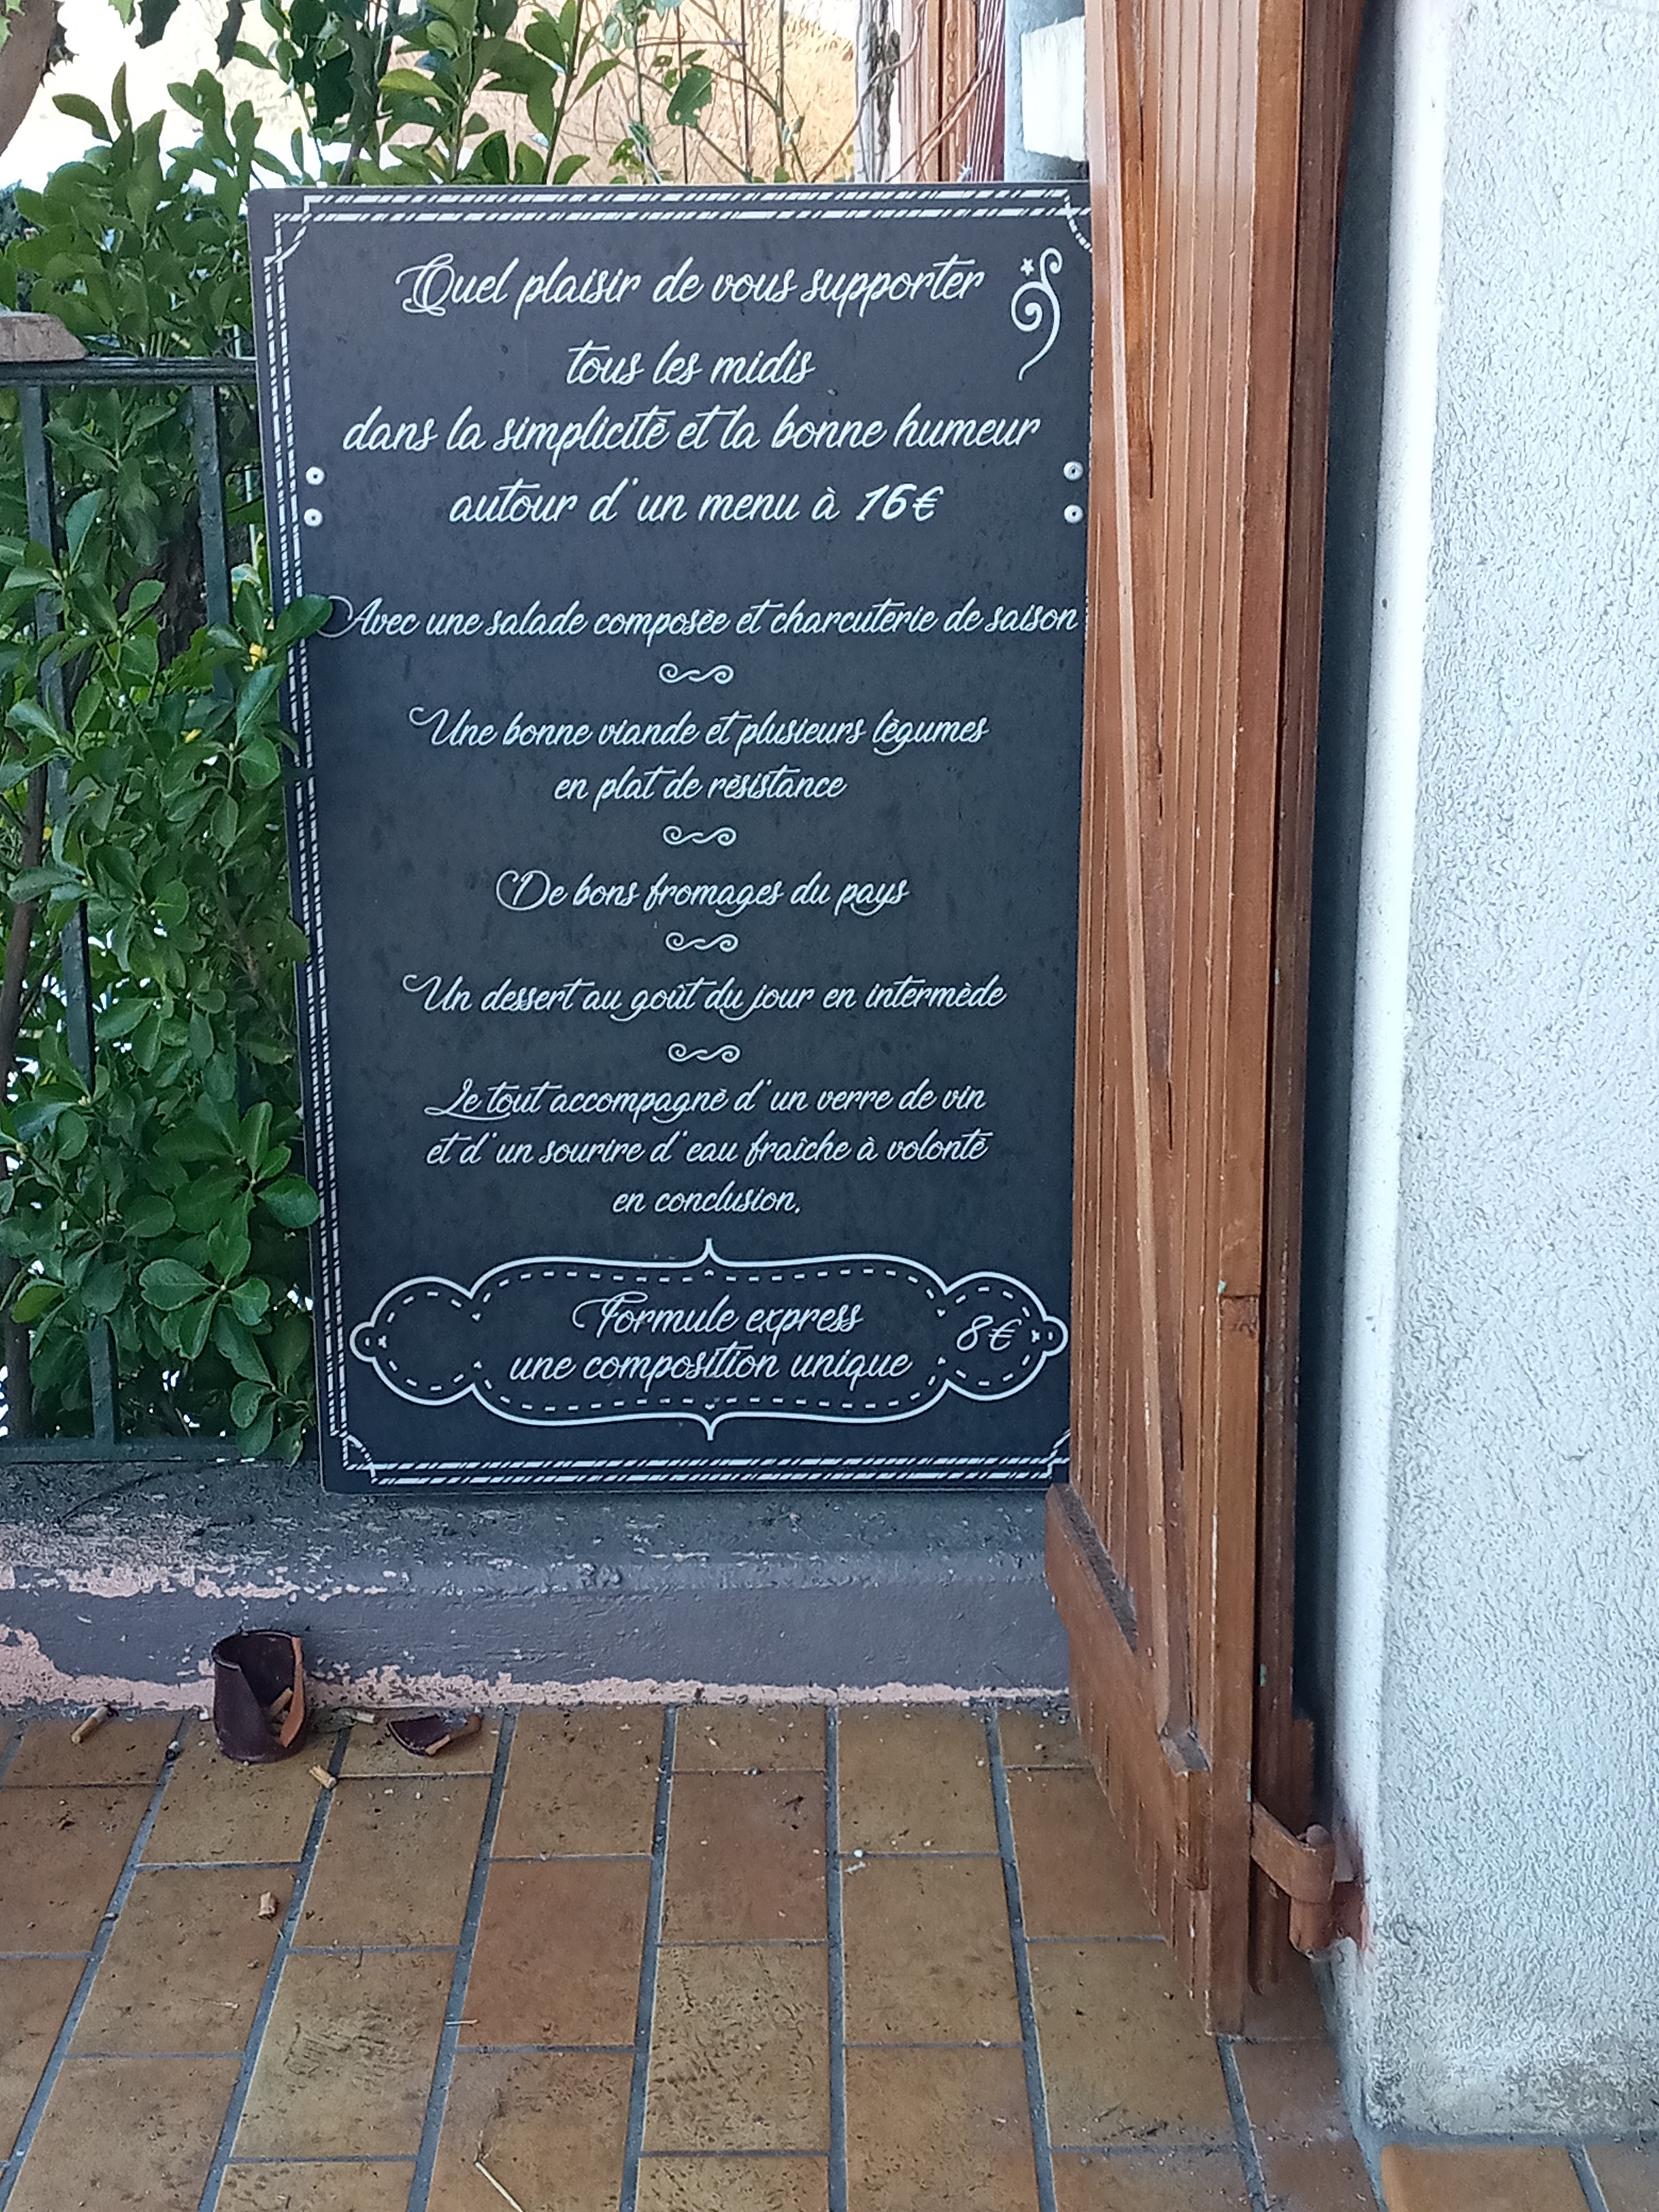 Quel plaisir de vous supporter
tous les midis
dans la simplicité et la bonne humeur
autour d'un menu à 16€
Avec une salade composée et charcuterie de saison
Une bonne viande et plusieurs légumes
en plat de résistance
De bons fromages du pays
Un dessert au goût du jour en intermède
Le tout accompagné d'un verre de vin
et d'un sourire d'eau fraîche à volonté
en conclusion.
Formule express
une composition unique 8€